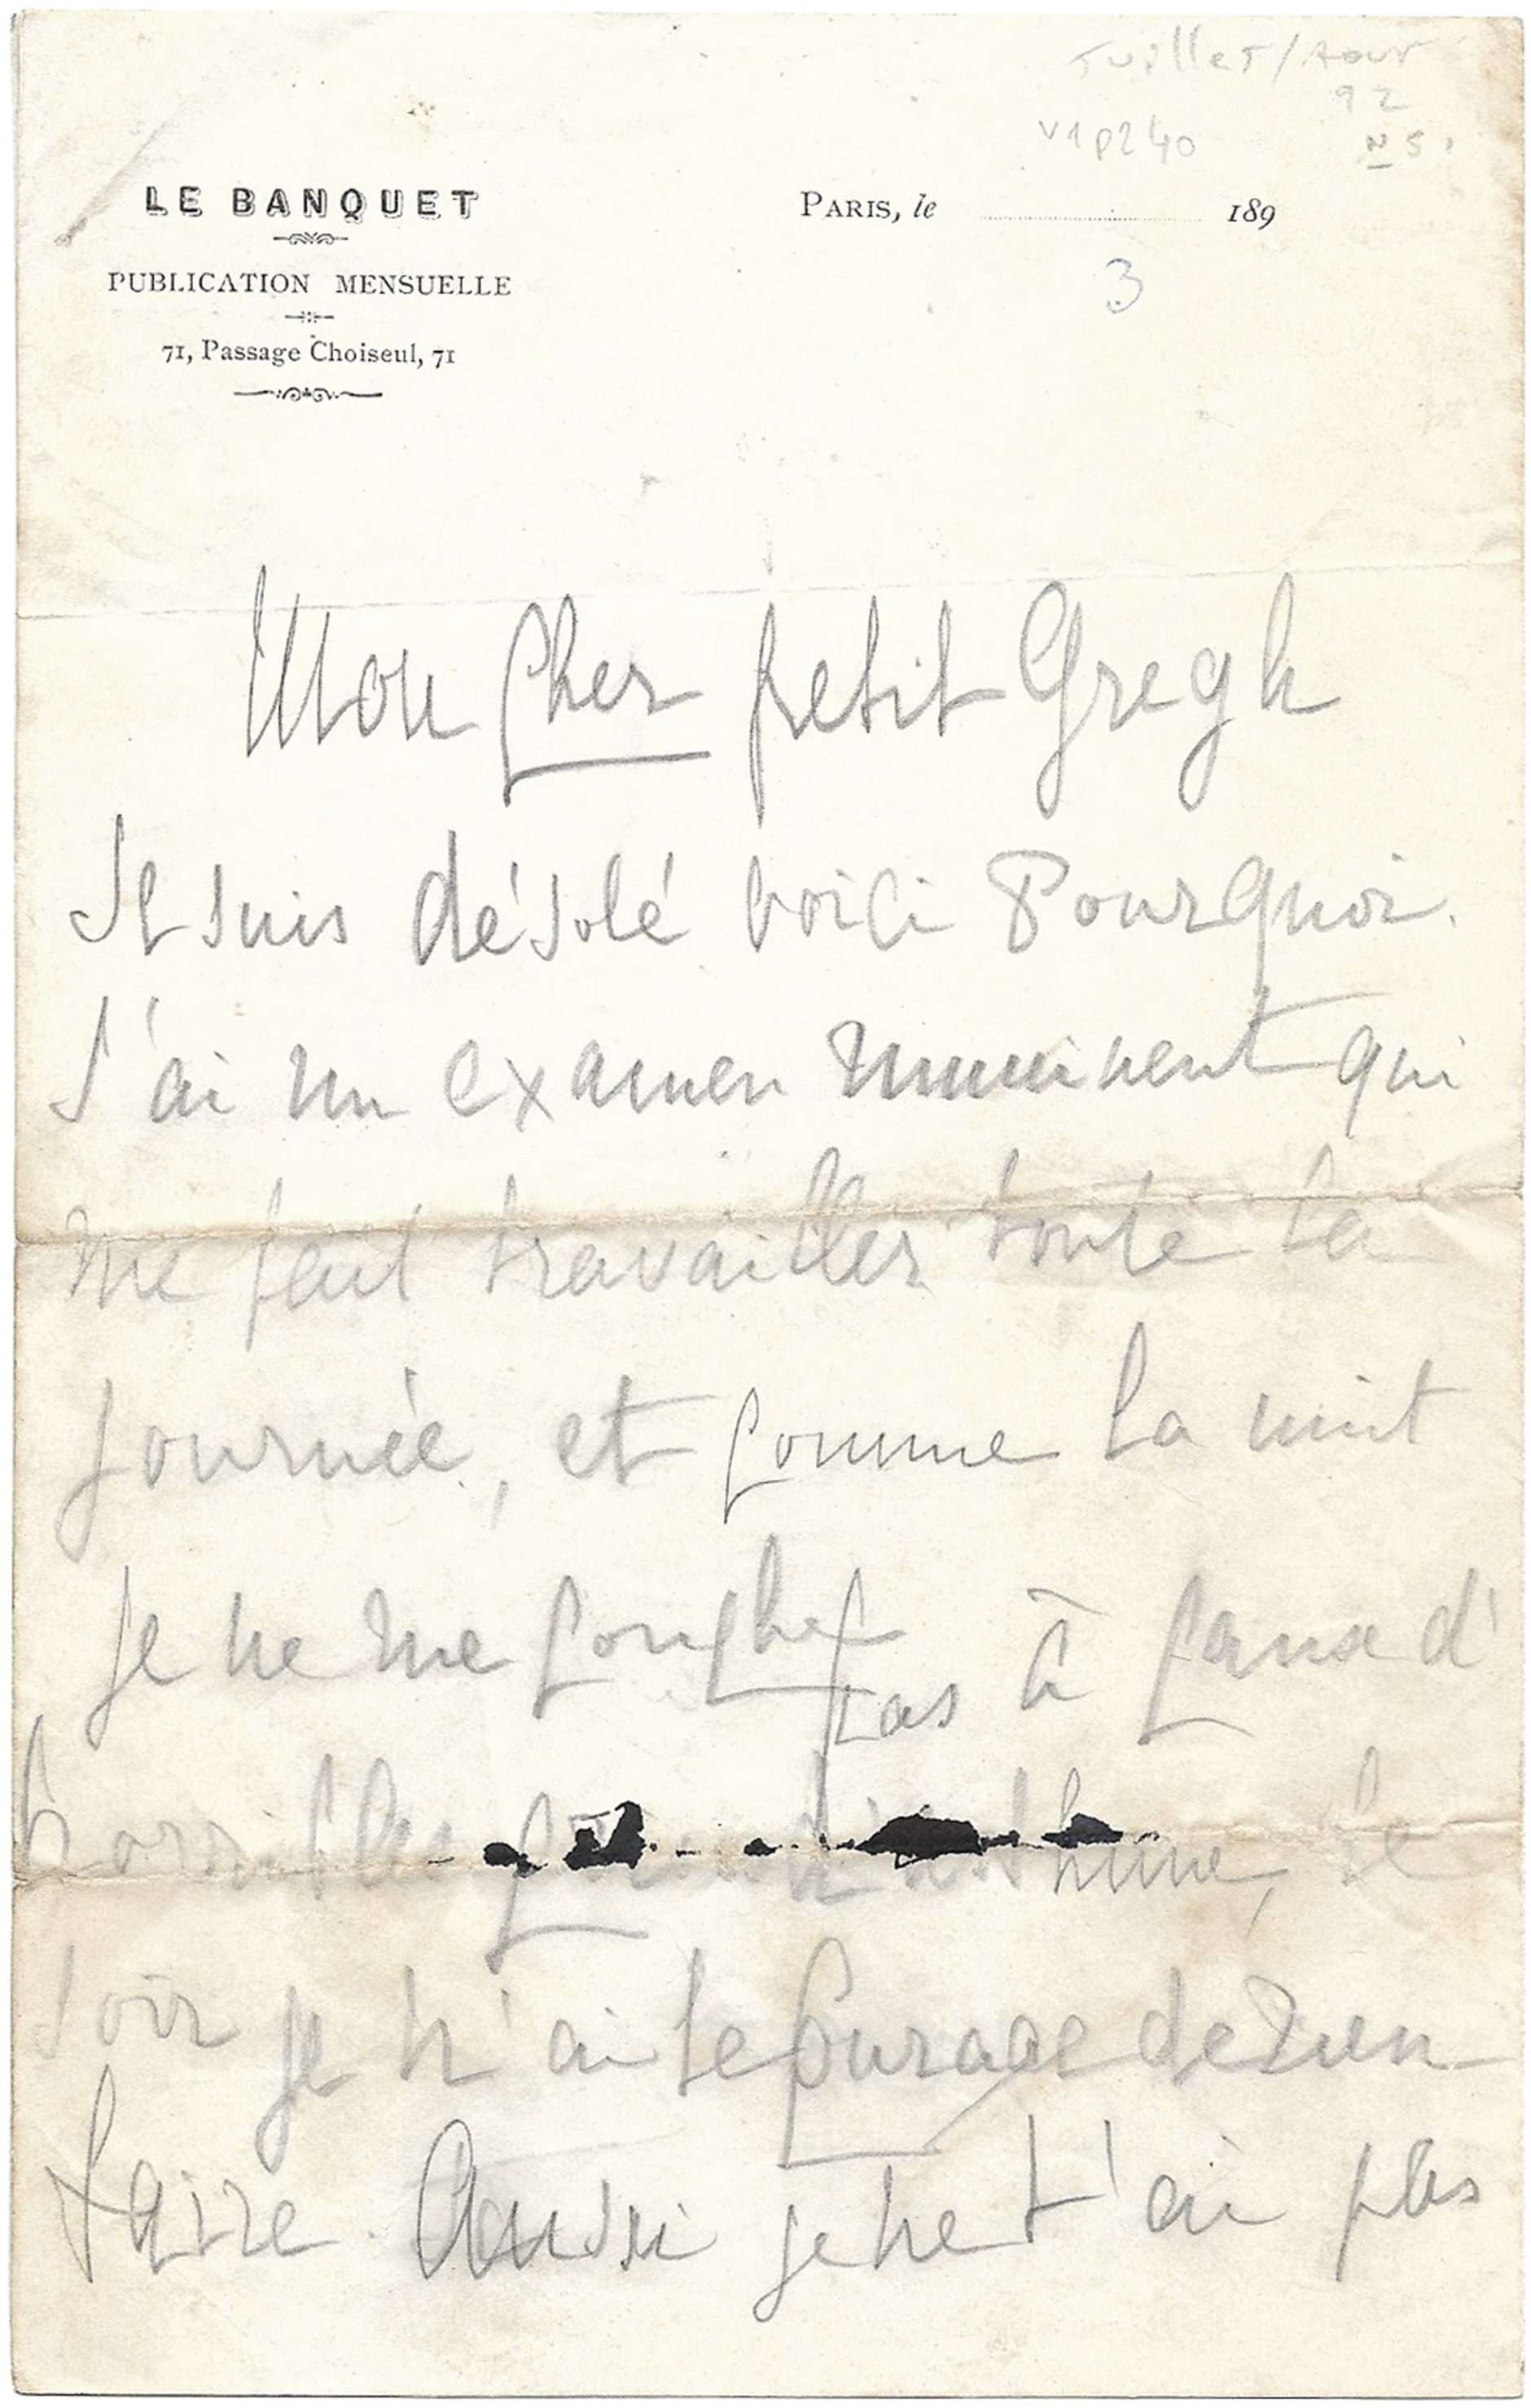 Juillet/Aout
92
V1 p240
N 5.
LE BANQUET
PUBLICATION MENSUELLE
71, Passage Choiseul, 71
PARIS, le 189
3
Mon Cher petit Gregh
Je suis désolé voici Pourquoi.
J'ai un examen imminent qui
me fait travailler toute la
journée, et comme la nuit
je ne me couche pas à cause d'
horribles d'asthme, le
soir je n'ai le courage de rien
faire. Aussi je ne t'ai pas